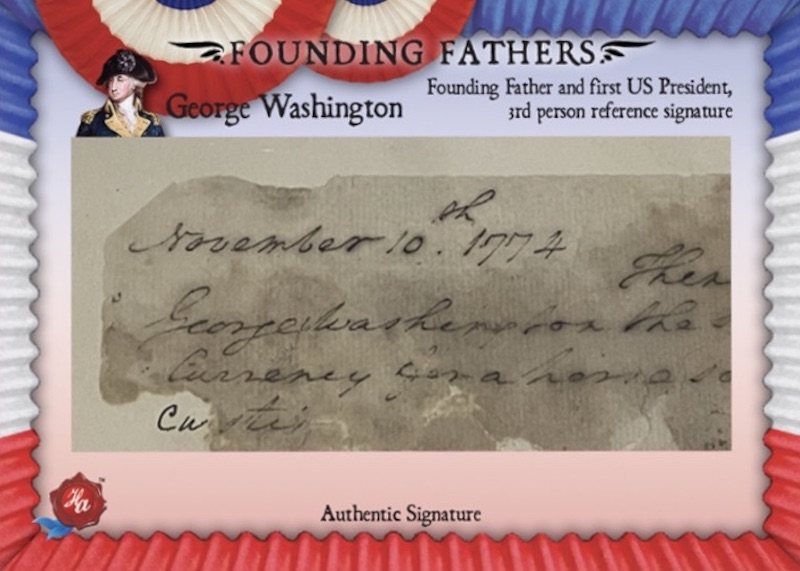 FOUNDING FATHERS
George Washington
Founding Father and first US President,
3rd person reference signature
November 10th. 1774
Then
George Washington the
Currency for a horse so
Custis
Ha
™
Authentic Signature